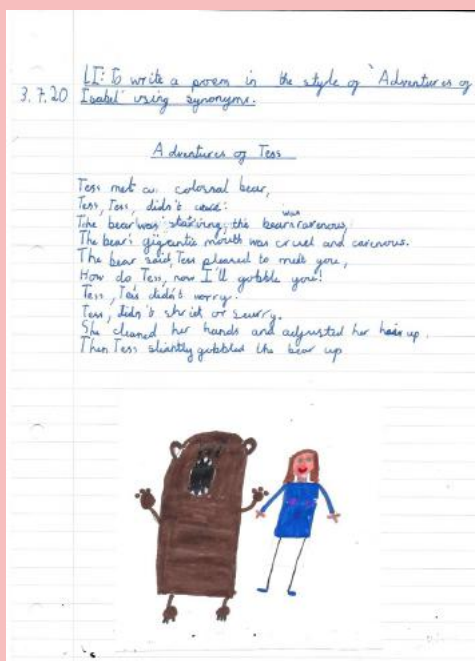 LI: To write a poem in the style of 'Adventures of
3.7.20 Isabel' using synonyms.
Adventures of Tess
Tess met a colossal bear,
Tess, Tess, didn't care:
The bear was starving, the bear was ravenous
The bear's gigantic mouth was cruel and cavenous.
The bear said, Tess pleased to meet you,
How do Tess, now I'll gobble you!
Tess, Tess didn't worry.
Tess, didn't shriek or scurry.
She cleaned her hands and adjusted her hair up.
Then Tess silently gobbled the bear up